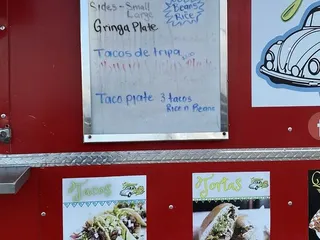 Sides - Small
Large
Beans
Rice
Gringa Plate
Tacos de tripa
Taco plate 3 tacos
Rice n Beans
Tacos
Tortas